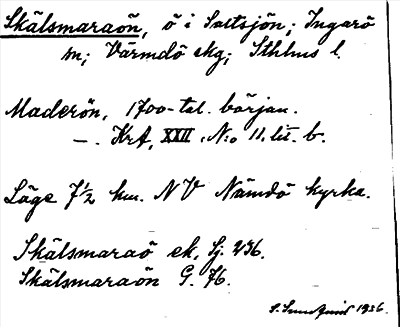 Skälsmaraön, ö i Saltsjön; Ingarö
m; Värmdö skg; Sthlms l.
Maderön, 1700-tal. början.
—. KrA, XXII. N:o 11. lit. b.
Läge 7½ km. NV Nämdö kyrka.
Skälsmaraö ek, Sj. 236.
Skälsmaraön G. 76.
S. Sundquist 1936.